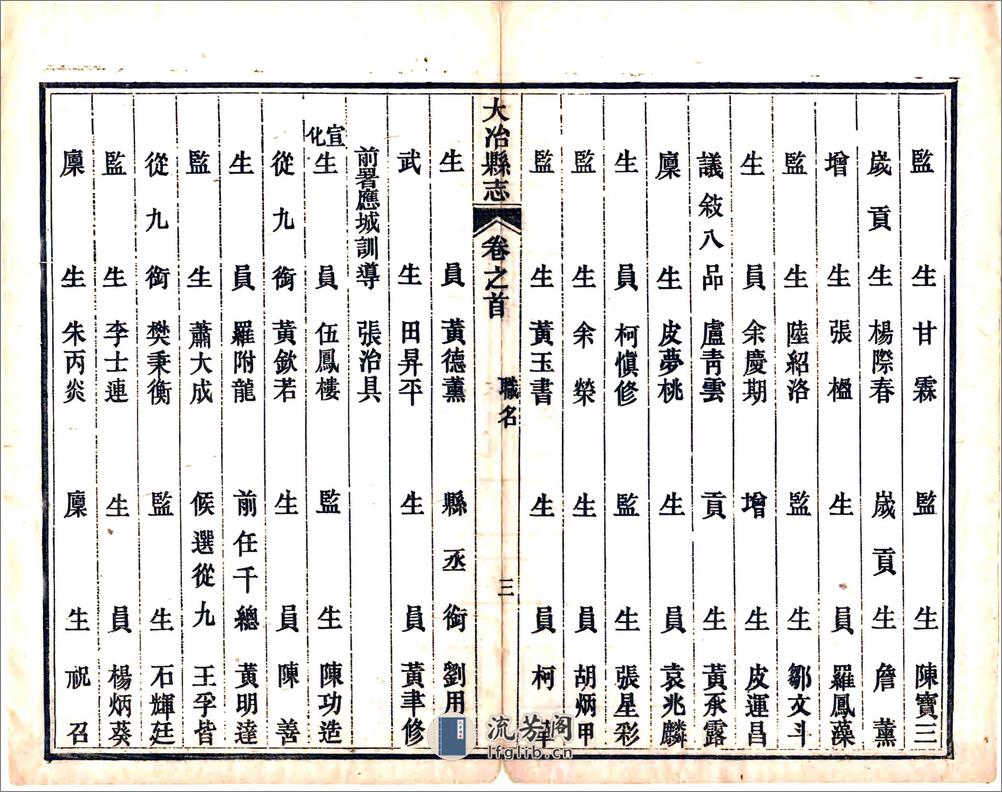 監生甘霖　監生陳寶三
歲貢生楊際春　歲貢生詹薰
增生張楹　生員羅鳳藻
監生陸紹洛　監生鄒文斗
生員余慶期　增生皮運昌
議敘八品盧青雲　貢生黃承露
廩生皮夢桃　生員袁兆麟
生員柯愼修　監生張星彩
監生余榮　生員胡炳甲
監生黃玉書　生員柯
大冶縣志　卷之首　職名　三
生員黃德薰　縣丞銜劉用
武生田昇平　生員黃聿修
前署應城訓導張治具
宣化生員伍鳳樓　監生陳功造
從九銜黃欽若　生員陳善
生員羅附龍　前任千總黃明達
監生蕭大成　候選從九王孚皆
從九銜樊秉衡　監生石輝廷
監生李士連　生員楊炳葵
廩生朱丙炎　廩生祝召
流芳阁
lfglib.cn